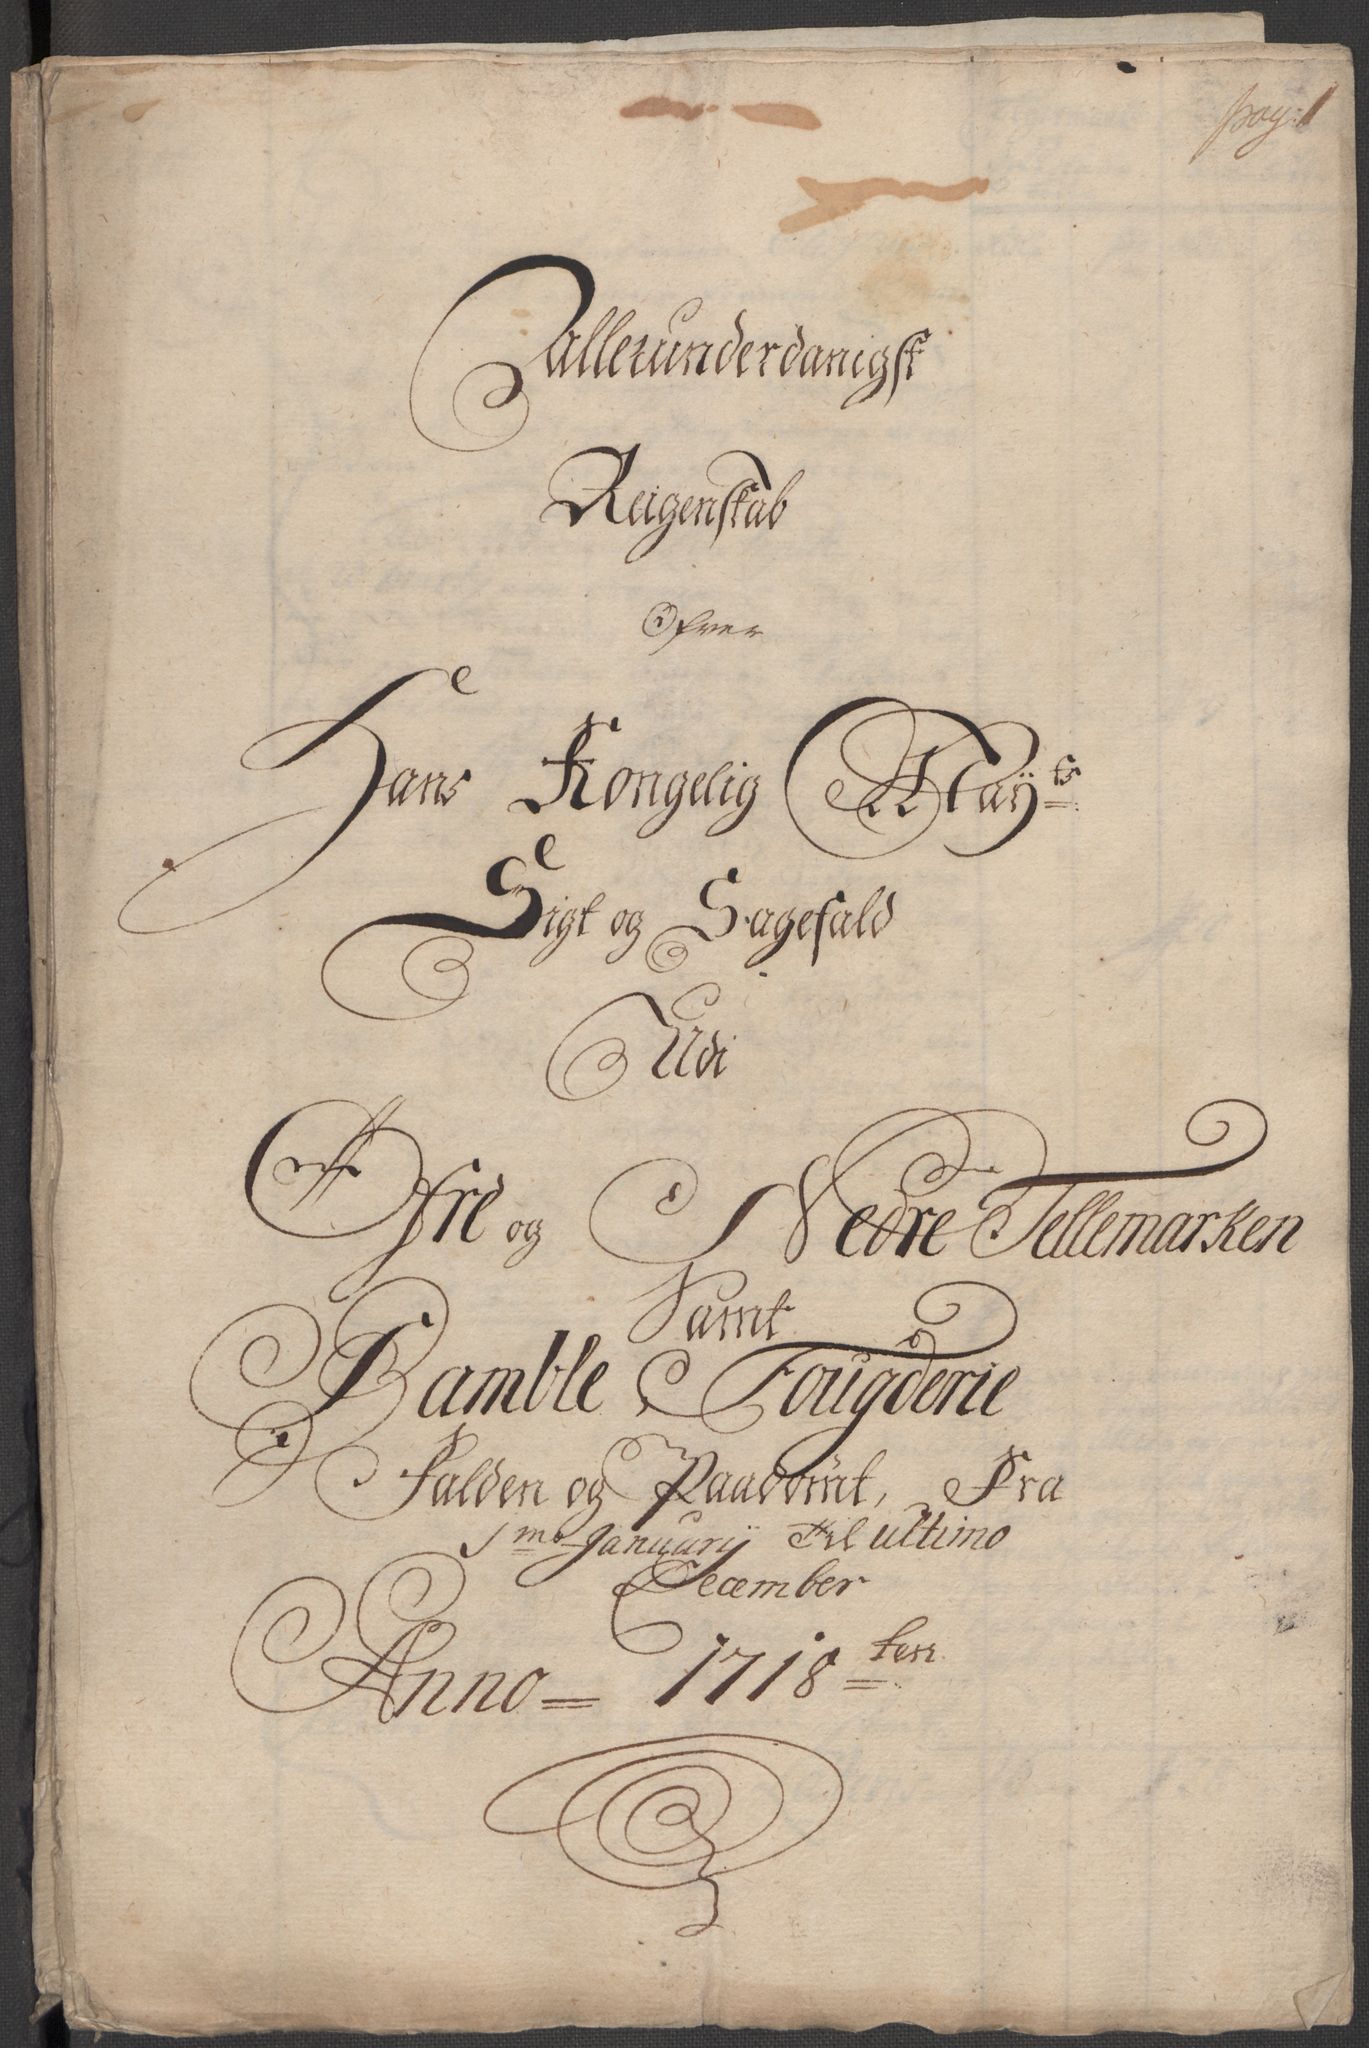 pag: 1
allerunderdanigst
Reigenskab
Ofver
Hans Kongelig Mayts
Sigt og Sagefald
Udi
Øfre og Nedre Tellemarken
Samt
Bamble Fougderie
Falden og Paadömt, Fra
1mo Januarij til ultimo
December
Anno 1718ten